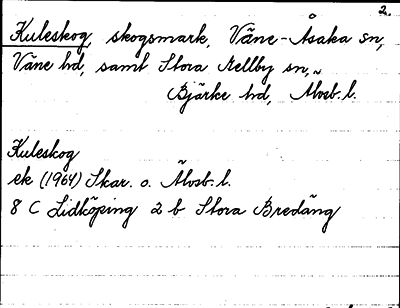 2.
Kuleskog, skogsmark, Väne-Åsaka sn,
Väne hd, samt Stora Mellby sn,
Bjärke hd, Älvsb. l.
Kuleskog
ek (1964) Skar. o. Älvsb. l.
8 C Lidköping 2 b Stora Bredäng